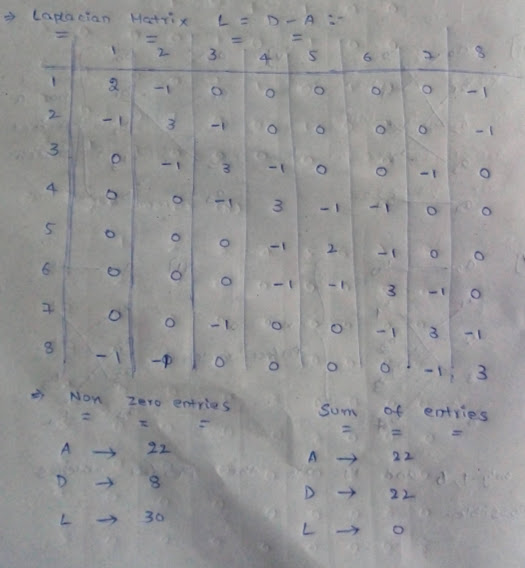 ⇒ Laplacian Matrix L = D - A :-
1 2 3 4 5 6 7 8
1 2 -1 0 0 0 0 0 -1
2 -1 3 -1 0 0 0 0 -1
3 0 -1 3 -1 0 0 -1 0
4 0 0 -1 3 -1 -1 0 0
5 0 0 0 -1 2 -1 0 0
6 0 0 0 -1 -1 3 -1 0
7 0 0 -1 0 0 -1 3 -1
8 -1 -1 0 0 0 0 -1 3
⇒ Non zero entries Sum of entries
A → 22 A → 22
D → 8 D → 22
L → 30 L → 0